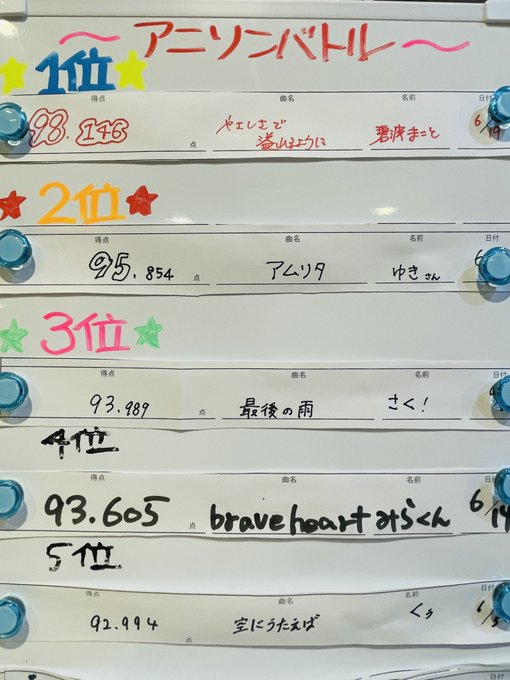 ~アニソンバトル~
1位
得点 曲名 名前 日付
98.146 点 やさしさで 6/19
溢れるように 碧波まこと
2位
得点 曲名 名前 日付
95.854 点 アムリタ ゆきさん
3位
得点 曲名 名前 日付
93.989 点 最後の雨 さく!
4位
得点 曲名 名前 日付
93.605 点 brave heart みらくん 6/14
5位
得点 曲名 名前 日付
92.994 点 空にうたえば くぅ 6/5